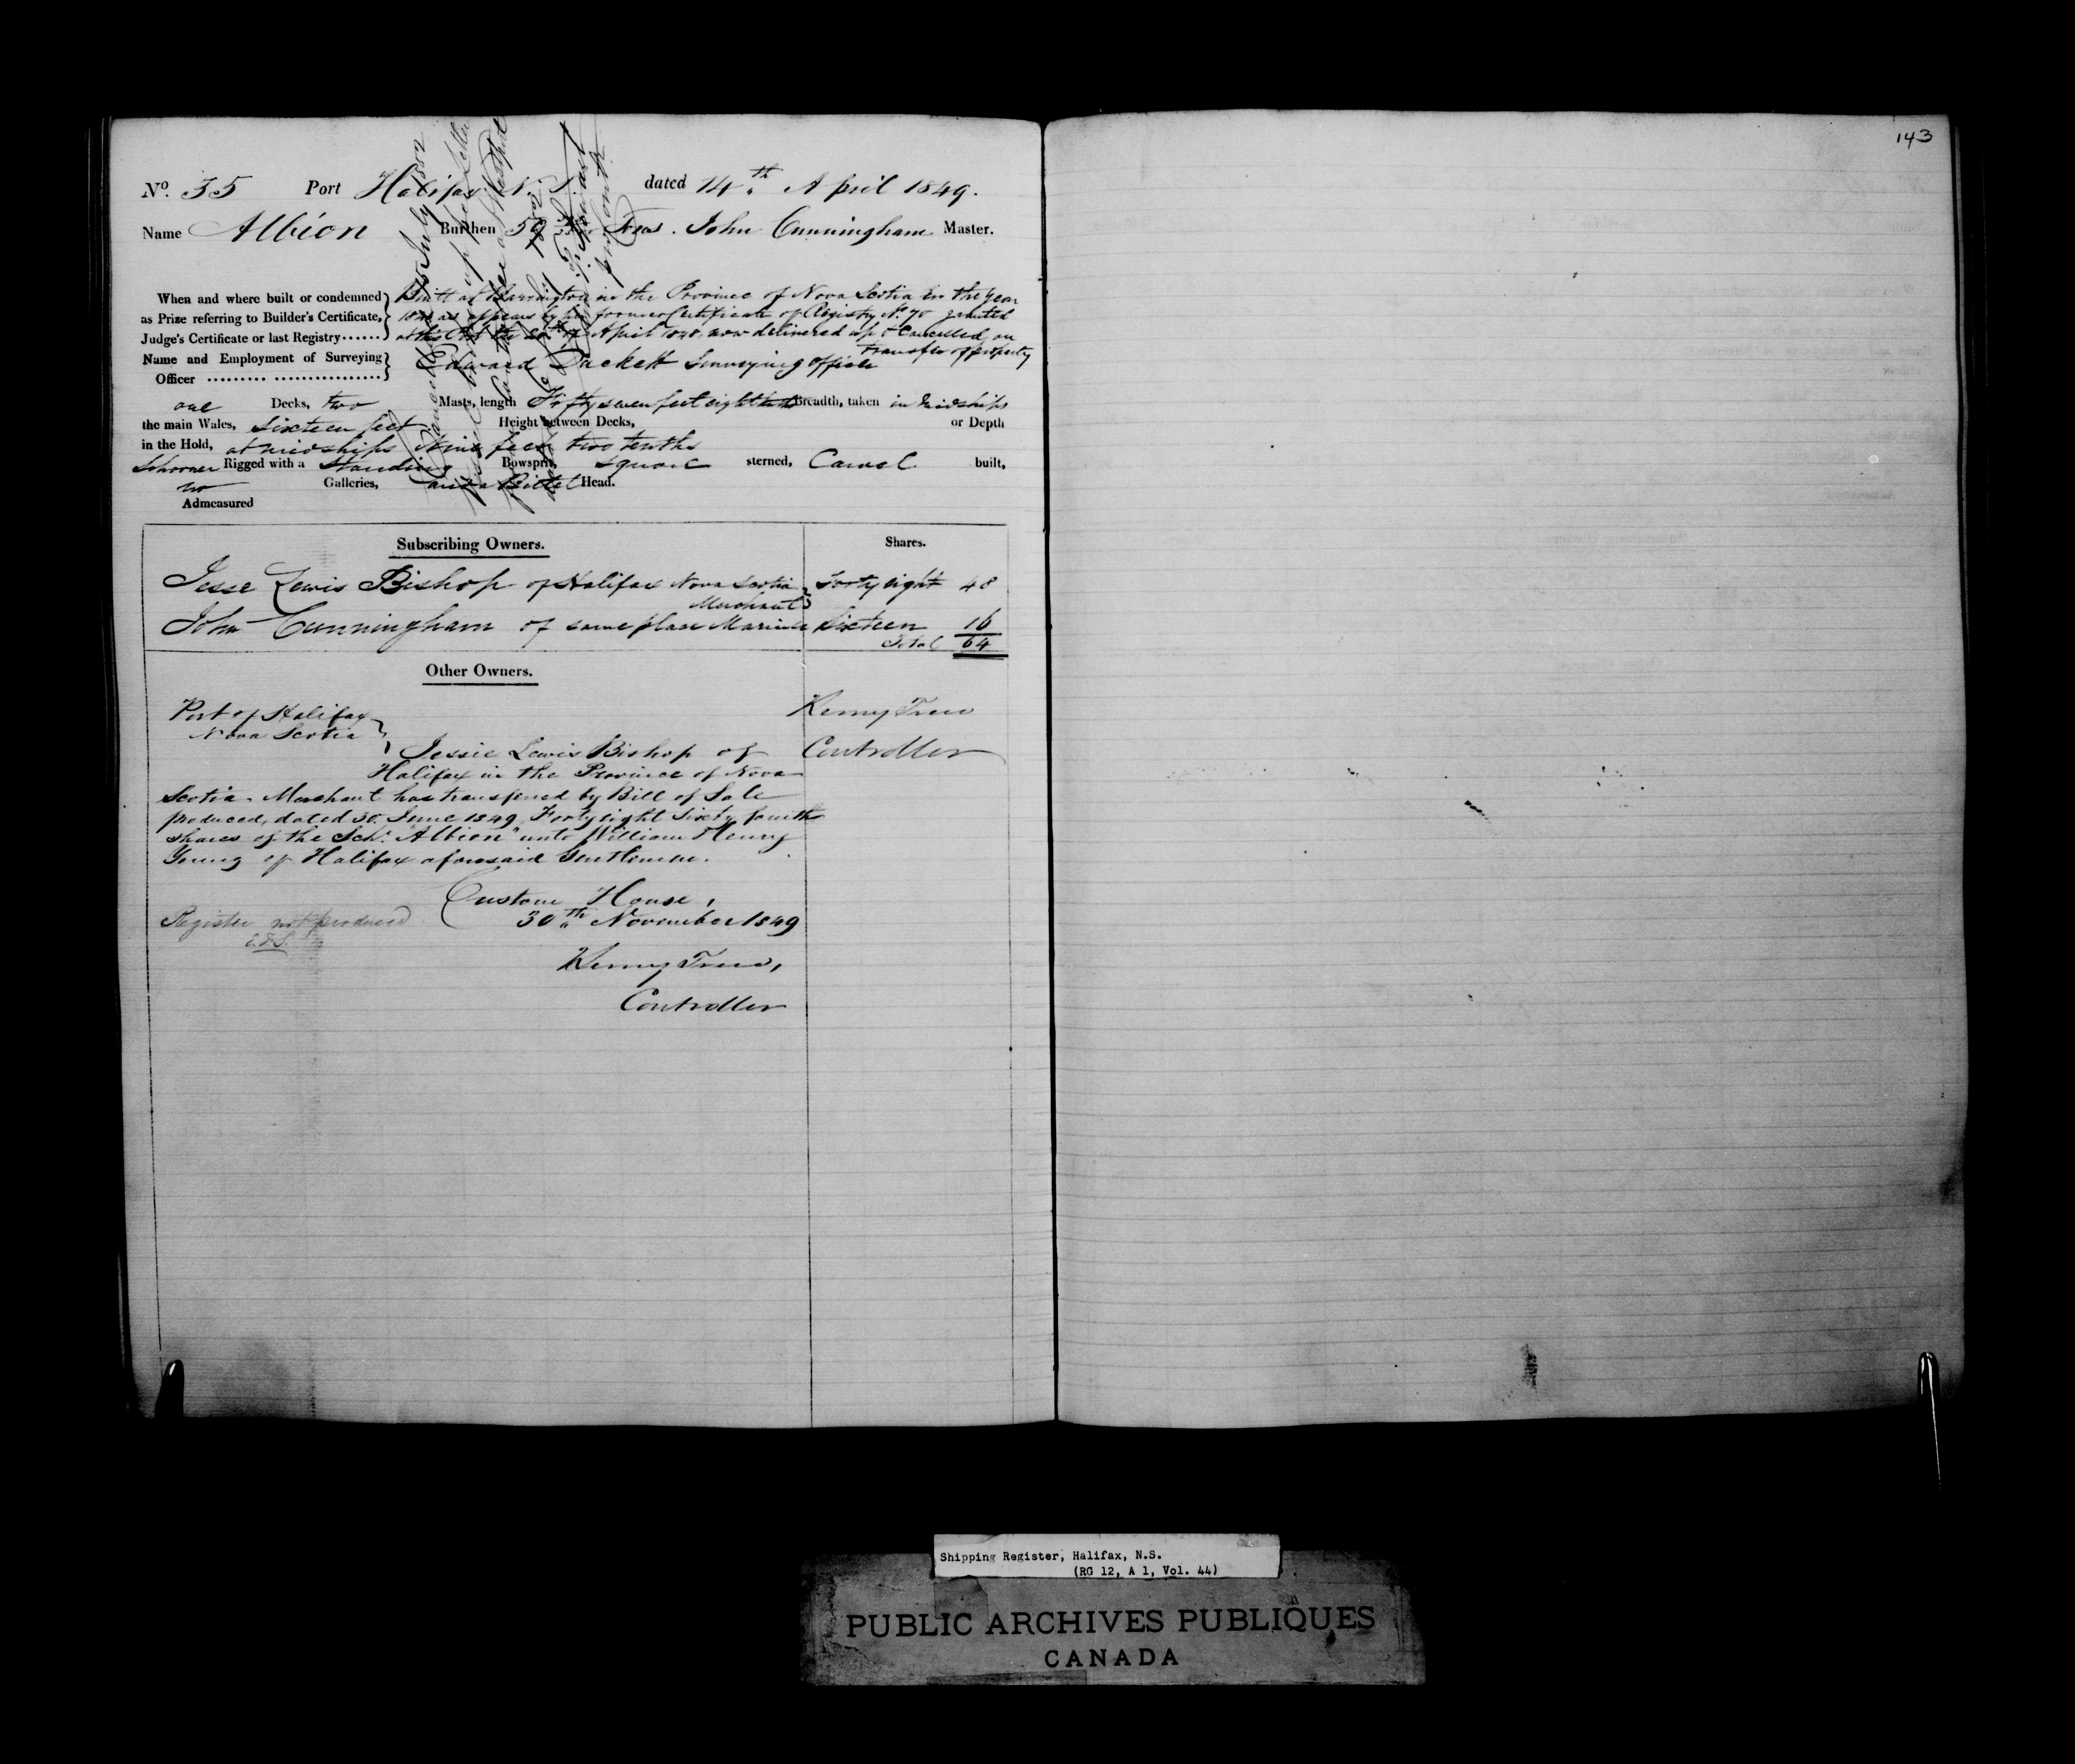 143
No. 35 Port Halifax N. S. dated 14th April 1849.
Name Albion Burthen 59 Tons. John Cunningham Master.
When and where built or condemned
as Prize referring to Builder's Certificate,
Judge's Certificate or last Registry......
Built at Barrington in the Province of Nova Scotia in the year
as appears by former Certificate of Registry No. 70 granted
at this Port the April now delivered up & Cancelled, on
transfer of property
Name and Employment of Surveying
Officer
Edward Duckett Surveying Officer
one Decks, two Masts, length Fifty seven feet eight tenths Breadth, taken in midships
the main Wales, Sixteen feet Height between Decks, or Depth
in the Hold, at midships Nine feet two tenths
Schooner Rigged with a Standing Bowsprit, square sterned, Carvel built,
no Galleries, and a Billet Head.
Admeasured
Subscribing Owners. Shares.
Jesse Lewis Bishop of Halifax Nova Scotia Forty eight 48
Merchant
John Cunningham of same place Mariner Sixteen 16
Total 64
Other Owners.
Port of Halifax
Nova Scotia
Henry Trew
Controller
Jessie Lewis Bishop of
Halifax in the Province of Nova
Scotia - Merchant has transferred by Bill of Sale
produced, dated 30 June 1849 Forty eight Sixty fourth
shares of the Schr. "Albion" unto William Henry
Young of Halifax aforesaid Gentleman.
Custom House,
30th November 1849
Register not produced
Henry Trew,
Controller
Shipping Register, Halifax, N.S.
(RG 12, A 1, Vol. 44)
PUBLIC ARCHIVES PUBLIQUES
CANADA